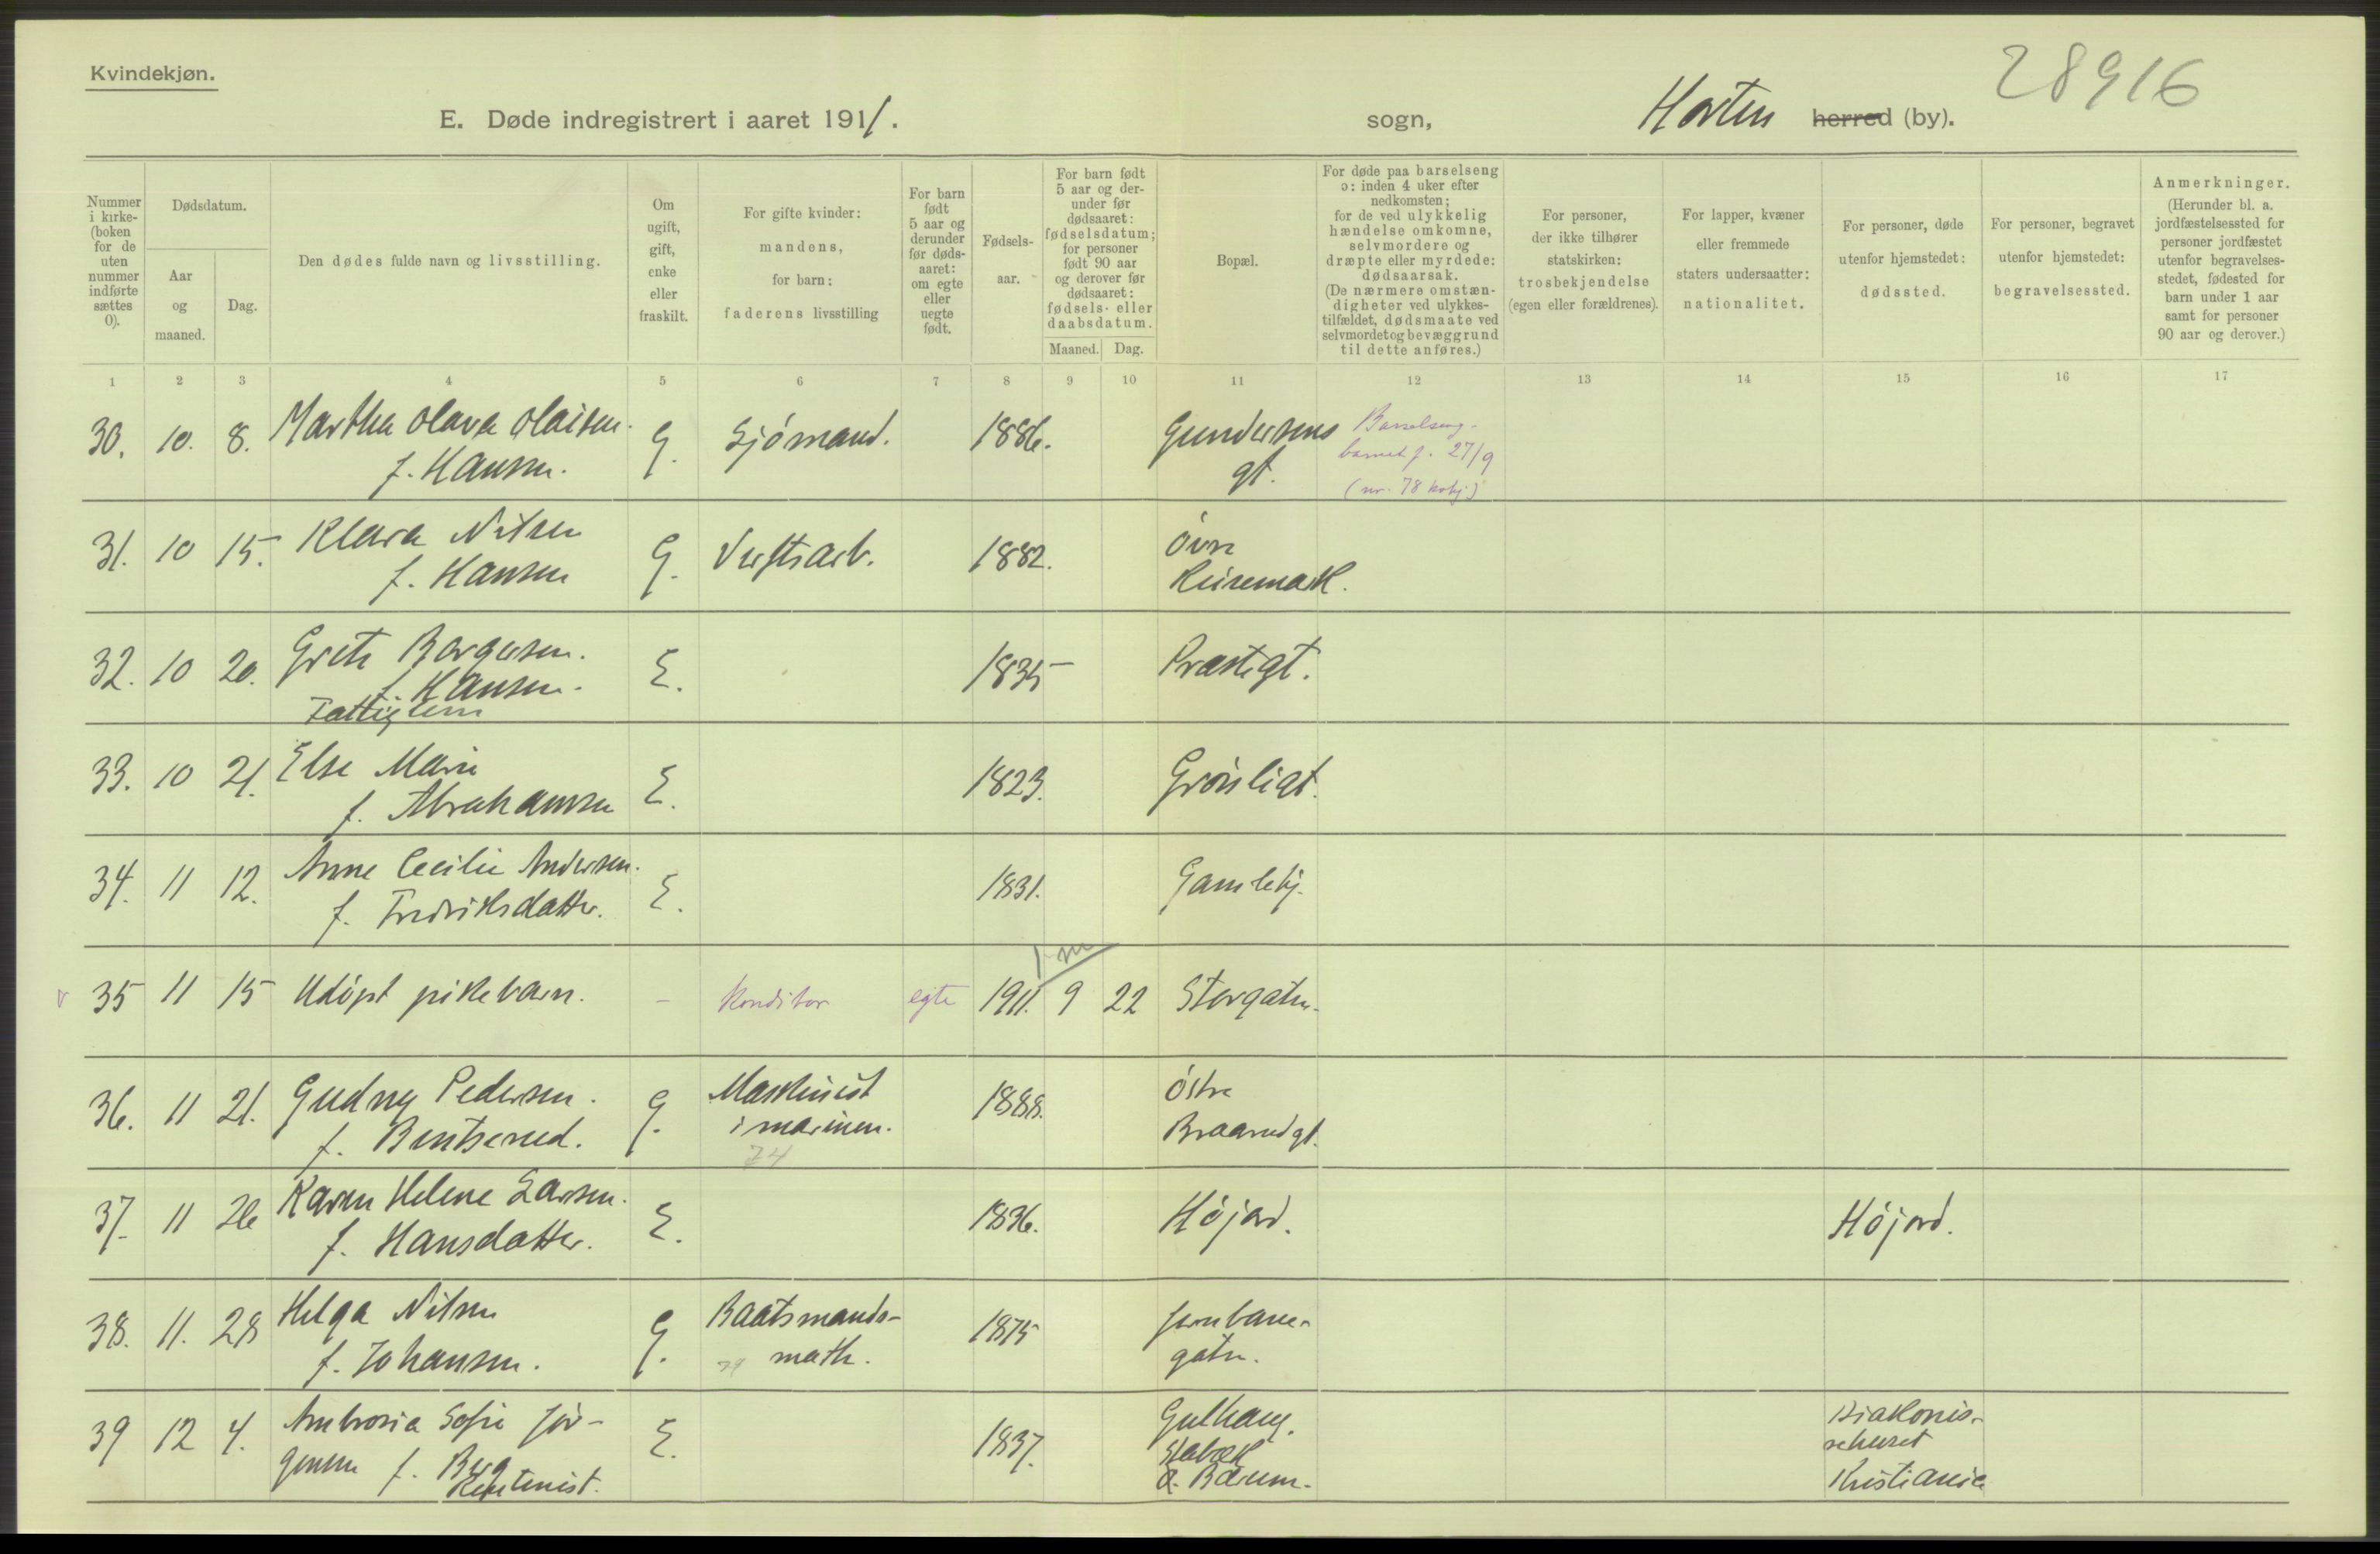 Kvindekjøn.
28916
E. Døde indregistrert i aaret 1911.
sogn, Horten herred (by).
Nummer i kirke-(boken for de uten nummer indførte sættes 0).
Dødsdatum.
Aar og maaned.
Dag.
Den dødes fulde navn og livsstilling.
Om ugift, gift, enke eller fraskilt.
For gifte kvinder: mandens, for barn: faderens livsstilling
For barn født 5 aar og derunder før døds-aaret: om egte eller uegte født.
Fødsels-aar.
For barn født 5 aar og der-under før dødsaaret: fødselsdatum; for personer født 90 aar og derover før dødsaaret: fødsels- eller daabsdatum.
Maaned. Dag.
Bopæl.
For døde paa barselseng ɔ: inden 4 uker efter nedkomsten; for de ved ulykkelig hændelse omkomne, selvmordere og dræpte eller myrdede: dødsaarsak. (De nærmere omstæn-digheter ved ulykkes-tilfældet, dødsmaate ved selvmordet og bevæggrund til dette anføres.)
For personer, der ikke tilhører statskirken: trosbekjendelse (egen eller forældrenes).
For lapper, kvæner eller fremmede staters undersaatter: nationalitet.
For personer, døde utenfor hjemstedet: dødssted.
For personer, begravet utenfor hjemstedet: begravelsessted.
Anmerkninger. (Herunder bl. a. jordfæstelsessted for personer jordfæstet utenfor begravelses-stedet, fødested for barn under 1 aar samt for personer 90 aar og derover.)
1 2 3 4 5 6 7 8 9 10 11 12 13 14 15 16 17
30. 10. 8. Martha Olava Olaisen. G. Sjömand. 1886. Gundersens Barselseng-
f. Hansen. gt. barnet f. 27/9
(nr. 78 kbhj)
31. 10 15. Klara Nilsen G. Verftsarb. 1882. Övre
f. Hansen Keisemark.
32. 10 20. Grete Borgersen. E. 1835 Præstegt.
f. Hansen.
Fattiglem
33. 10 21. Else Marie E. 1823. Grønligt.
f. Abrahamsen
34. 11 12. Anne Cecilie Andersen. E. 1831. Gamlehj.
f. Fredriksdatter.
1 m
v 35 11 15 Udöpt pikebarn. - Konditor egte 1911. 9 22 Storgaten.
36. 11 21. Gudny Pedersen. G. Maskinist 1888. Östre
f. Bentserud. i marinen. Braarudgt.
74
37. 11 26 Karen Helene Larsen. E. 1836. Höjord. Höjord.
f. Hansdatter.
38. 11. 28 Helga Nilsen G. Baatsmands- 1875 Jernbane-
f. Johansen. math. gaten.
39 12 4. Ambrosia Sofie Jör- E. 1837. Gulhaug. Diakonis-
gensen f. Berg Stabæk sehuset
Rentenist. a. Bærum. Kristiania